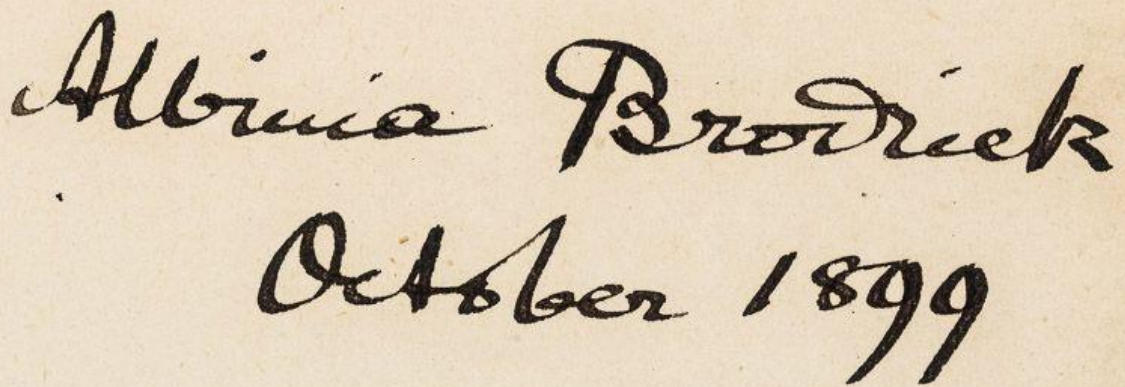 Albinia Brodrick
October 1899